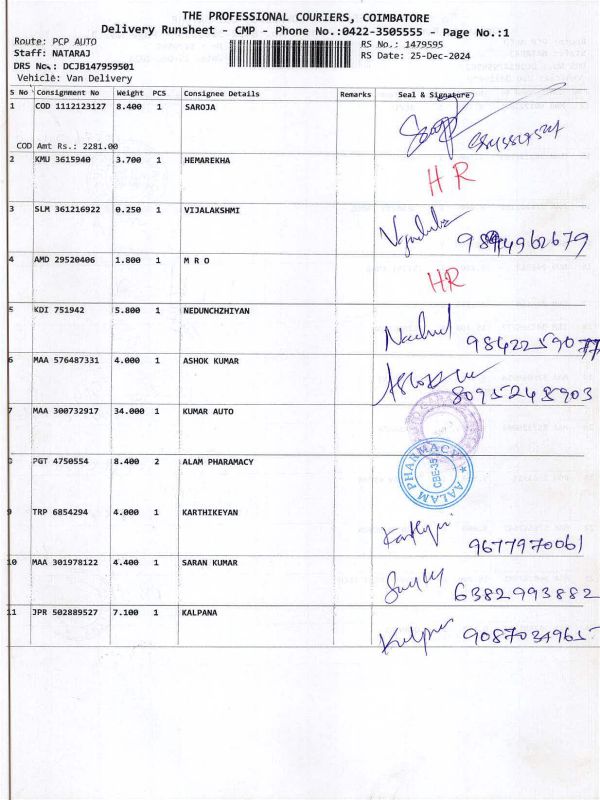 THE PROFESSIONAL COURIERS, COIMBATORE
Delivery Runsheet - CMP - Phone No.:0422-3505555 - Page No.:1
Route: PCP AUTO
Staff: NATARAJ
DRS No.: DCJB147959501
Vehicle: Van Delivery
RS No.: 1479595
RS Date: 25-Dec-2024
S No Consignment No Weight PCS Consignee Details Remarks Seal & Signature
1 COD 1112123127 8.400 1 SAROJA
COD Amt Rs.: 2281.00
2 KMU 3615940 3.700 1 HEMAREKHA HR
3 SLM 361216922 0.250 1 VIJALAKSHMI
4 AMD 29520406 1.800 1 M R O HR
5 KDI 751942 5.800 1 NEDUNCHZHIYAN 9842259077
6 MAA 576487331 4.000 1 ASHOK KUMAR 8095248903
7 MAA 300732917 34.000 1 KUMAR AUTO
8 PGT 4750554 8.400 2 ALAM PHARAMACY AALAM PHARMACY CBE-35
9 TRP 6854294 4.000 1 KARTHIKEYAN 9677970061
10 MAA 301978122 4.400 1 SARAN KUMAR 6382993882
11 JPR 502889527 7.100 1 KALPANA Kalpana